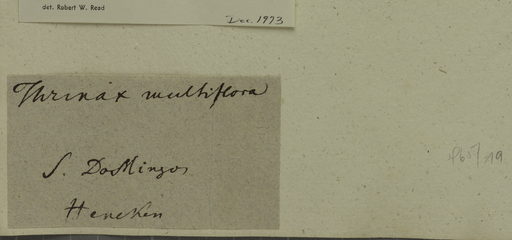 det. Robert W. Read
Dec. 1973
Thrinax multiflora
S. DoMingos
Heneken